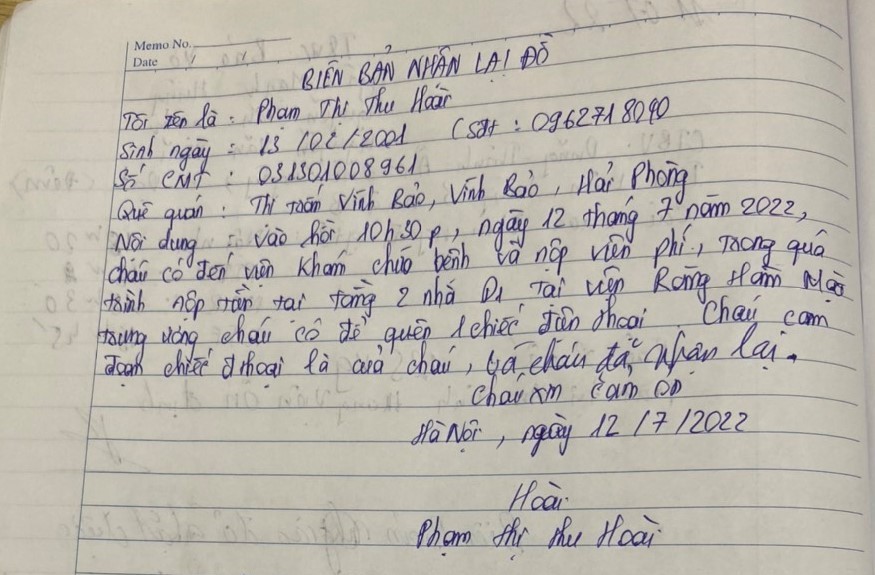 Memo No.
Date / /
BIÊN BẢN NHẬN LẠI ĐỒ
Tôi tên là : Phạm Thị Thu Hoài
Sinh ngày : 13 / 02 / 2001 (Sđt : 0962718090
Số CMT : 031301008961
Quê quán : Thị trấn Vĩnh Bảo, Vĩnh Bảo, Hải Phòng
Nội dung : Vào hồi 10h30p, ngày 12 tháng 7 năm 2022,
cháu có đến viện khám chữa bệnh và nộp viện phí, trong quá
trình nộp tiền tại tầng 2 nhà D1 tại viện Răng Hàm Mặt
trung ương cháu có để quên 1 chiếc điện thoại. Cháu cam
đoan chiếc đ thoại là của cháu, và cháu đã nhận lại.
Cháu xin cảm ơn
Hà Nội, ngày 12 / 7 / 2022
Hoài
Phạm Thị Thu Hoài